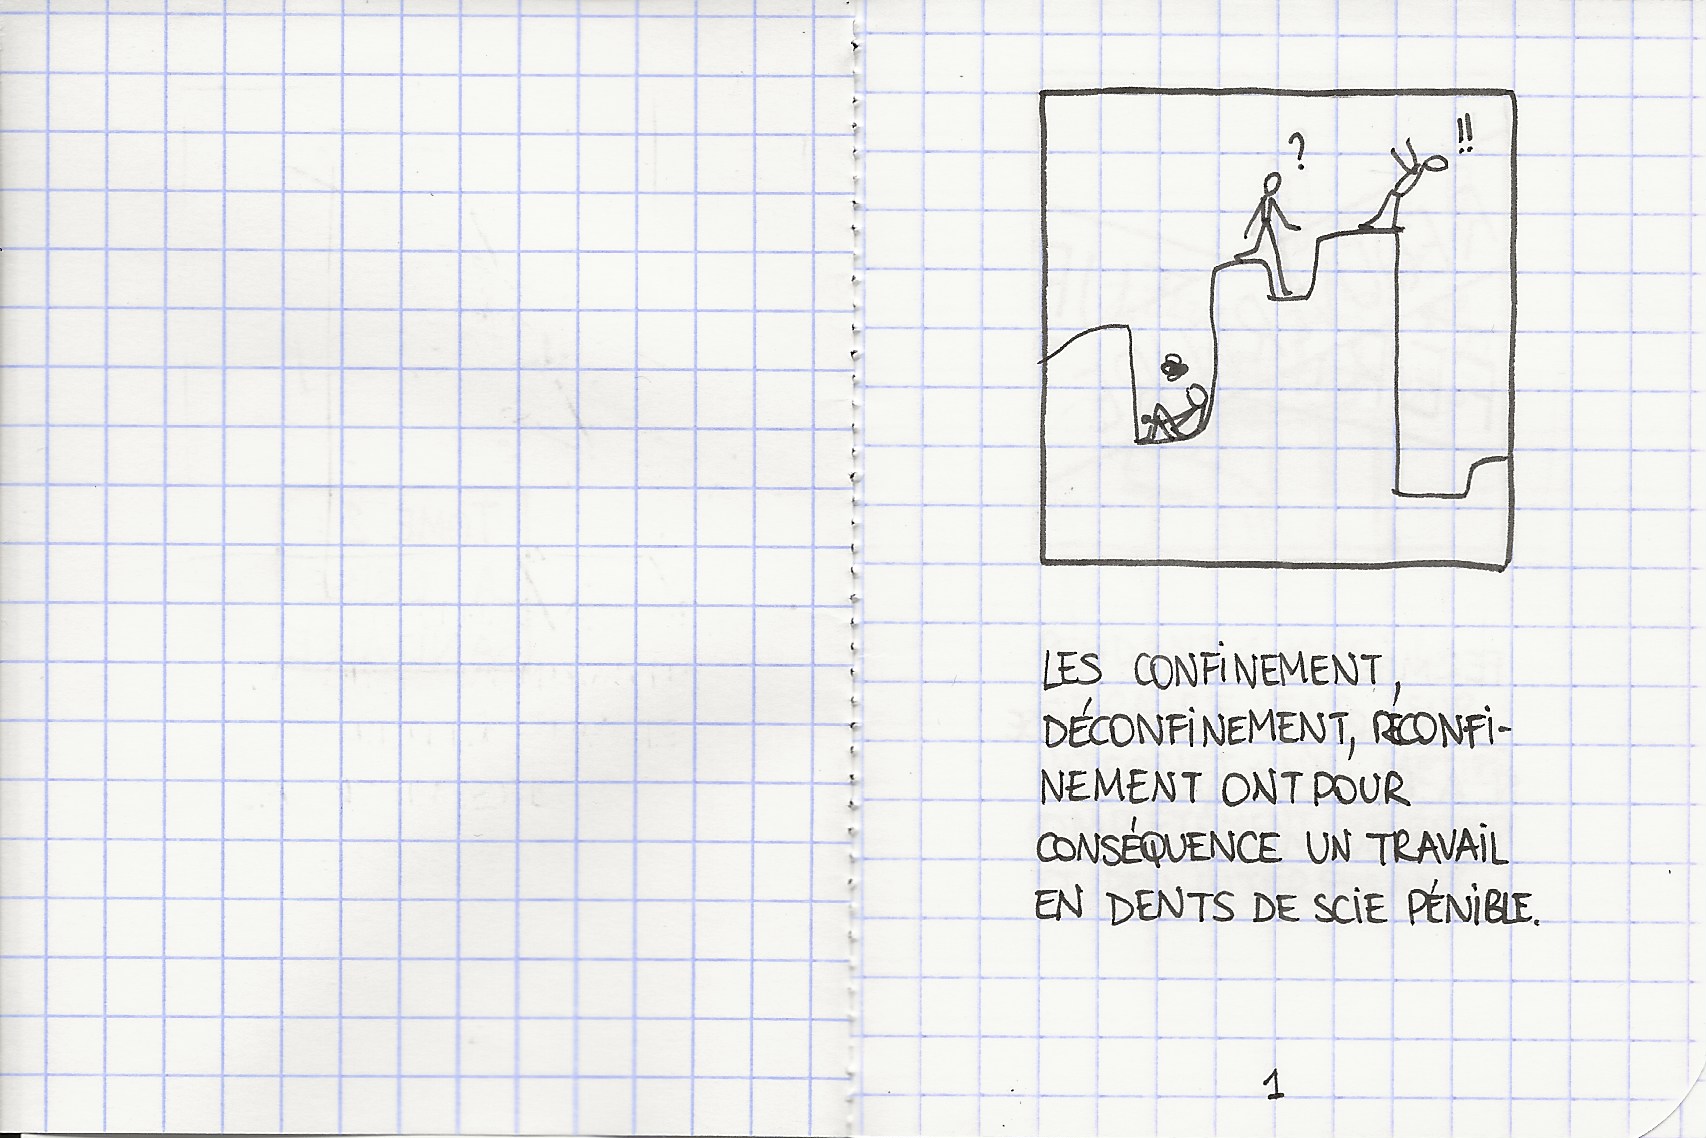 ?
!!
LES CONFINEMENT,
DÉCONFINEMENT, RÉCONFI-
NEMENT ONT POUR
CONSÉQUENCE UN TRAVAIL
EN DENTS DE SCIE PÉNIBLE.
1